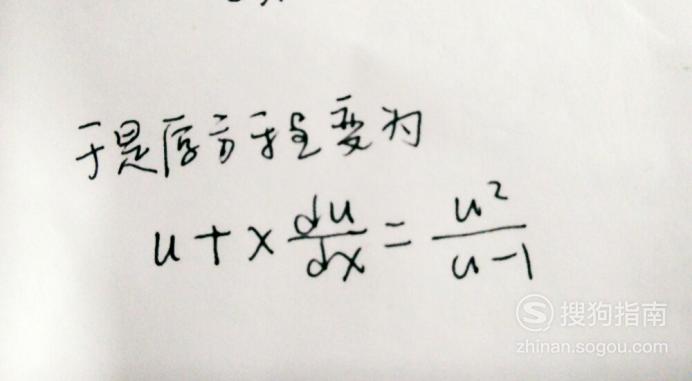 于是原方程变为
u+x du/dx = u²/u-1
搜狗指南
zhinan.sogou.com